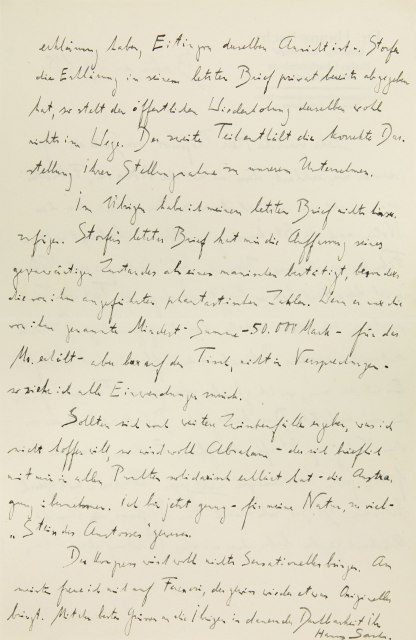 erklärung haben, Eitingon derselben Ansicht ist u. Storfer
die Erklärung in seinem letzten Brief privat bereits abgegeben
hat, so steht der öffentlichen Wiederholung derselben wohl
nichts im Wege. Der zweite Teil enthält die korrekte Dar-
stellung Ihrer Stellungnahme zu unserem Unternehmen.
Im Übrigen habe ich meinem letzten Brief nichts hinzu-
zufügen. Storfers letzter Brief hat mir die Auffassung seines
gegenwärtigen Zustandes als eines manischen bestätigt, besonders
die von ihm angeführten phantastischen Zahlen. Wenn er nur die
von ihm genannte Mindest-Summe – 50.000 Mark – für das
Ms. erhält – aber bar auf den Tisch, nicht in Versprechungen –
so ziehe ich alle Einwendungen zurück.
Sollten sich noch weitere Zwischenfälle ergeben, was ich
nicht hoffen will, so wird wohl Abraham – der sich brieflich
mit mir in allen Punkten solidarisch erklärt hat – die Austra-
gung übernehmen. Ich bin jetzt genug – für meine Natur, zu viel –
„Stein des Anstosses" gewesen.
Der Kongress wird wohl nichts Sensationelles bringen. Am
meisten freue ich mich auf Ferenczi, der gewiss wieder etwas Originelles
bringt. Mit den besten Grüssen an die Ihrigen in dauernder Dankbarkeit Ihr
Hanns Sachs.